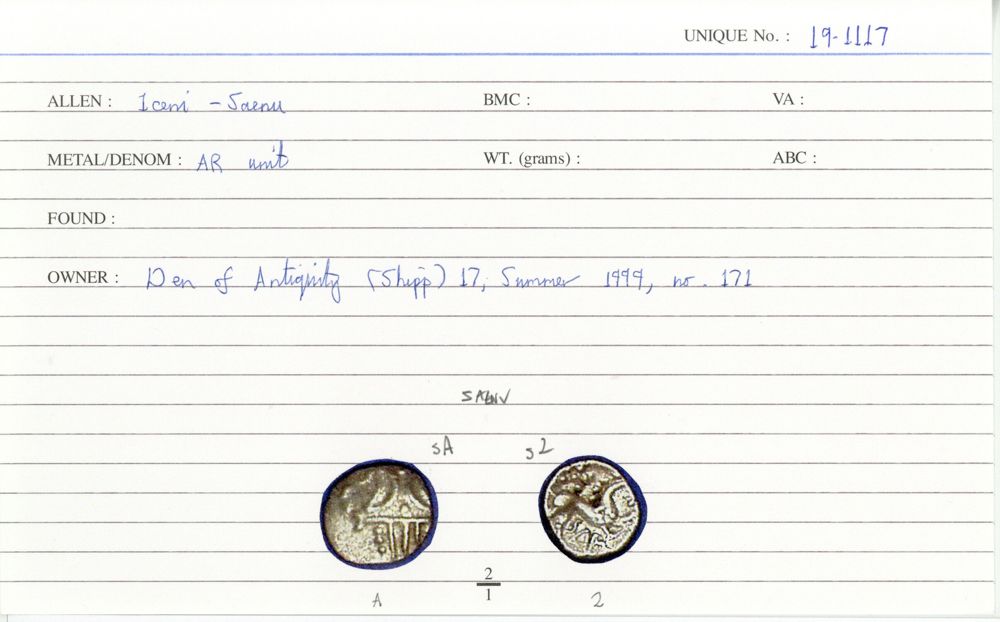 UNIQUE No. : 19-1117
ALLEN : Iceni - Saenu BMC : VA :
METAL/DENOM : AR unit WT. (grams) : ABC :
FOUND :
OWNER : Den of Antiquity (Shipp) 17, Summer 1999, no. 171
SAENV
sA s2
2
1
A 2